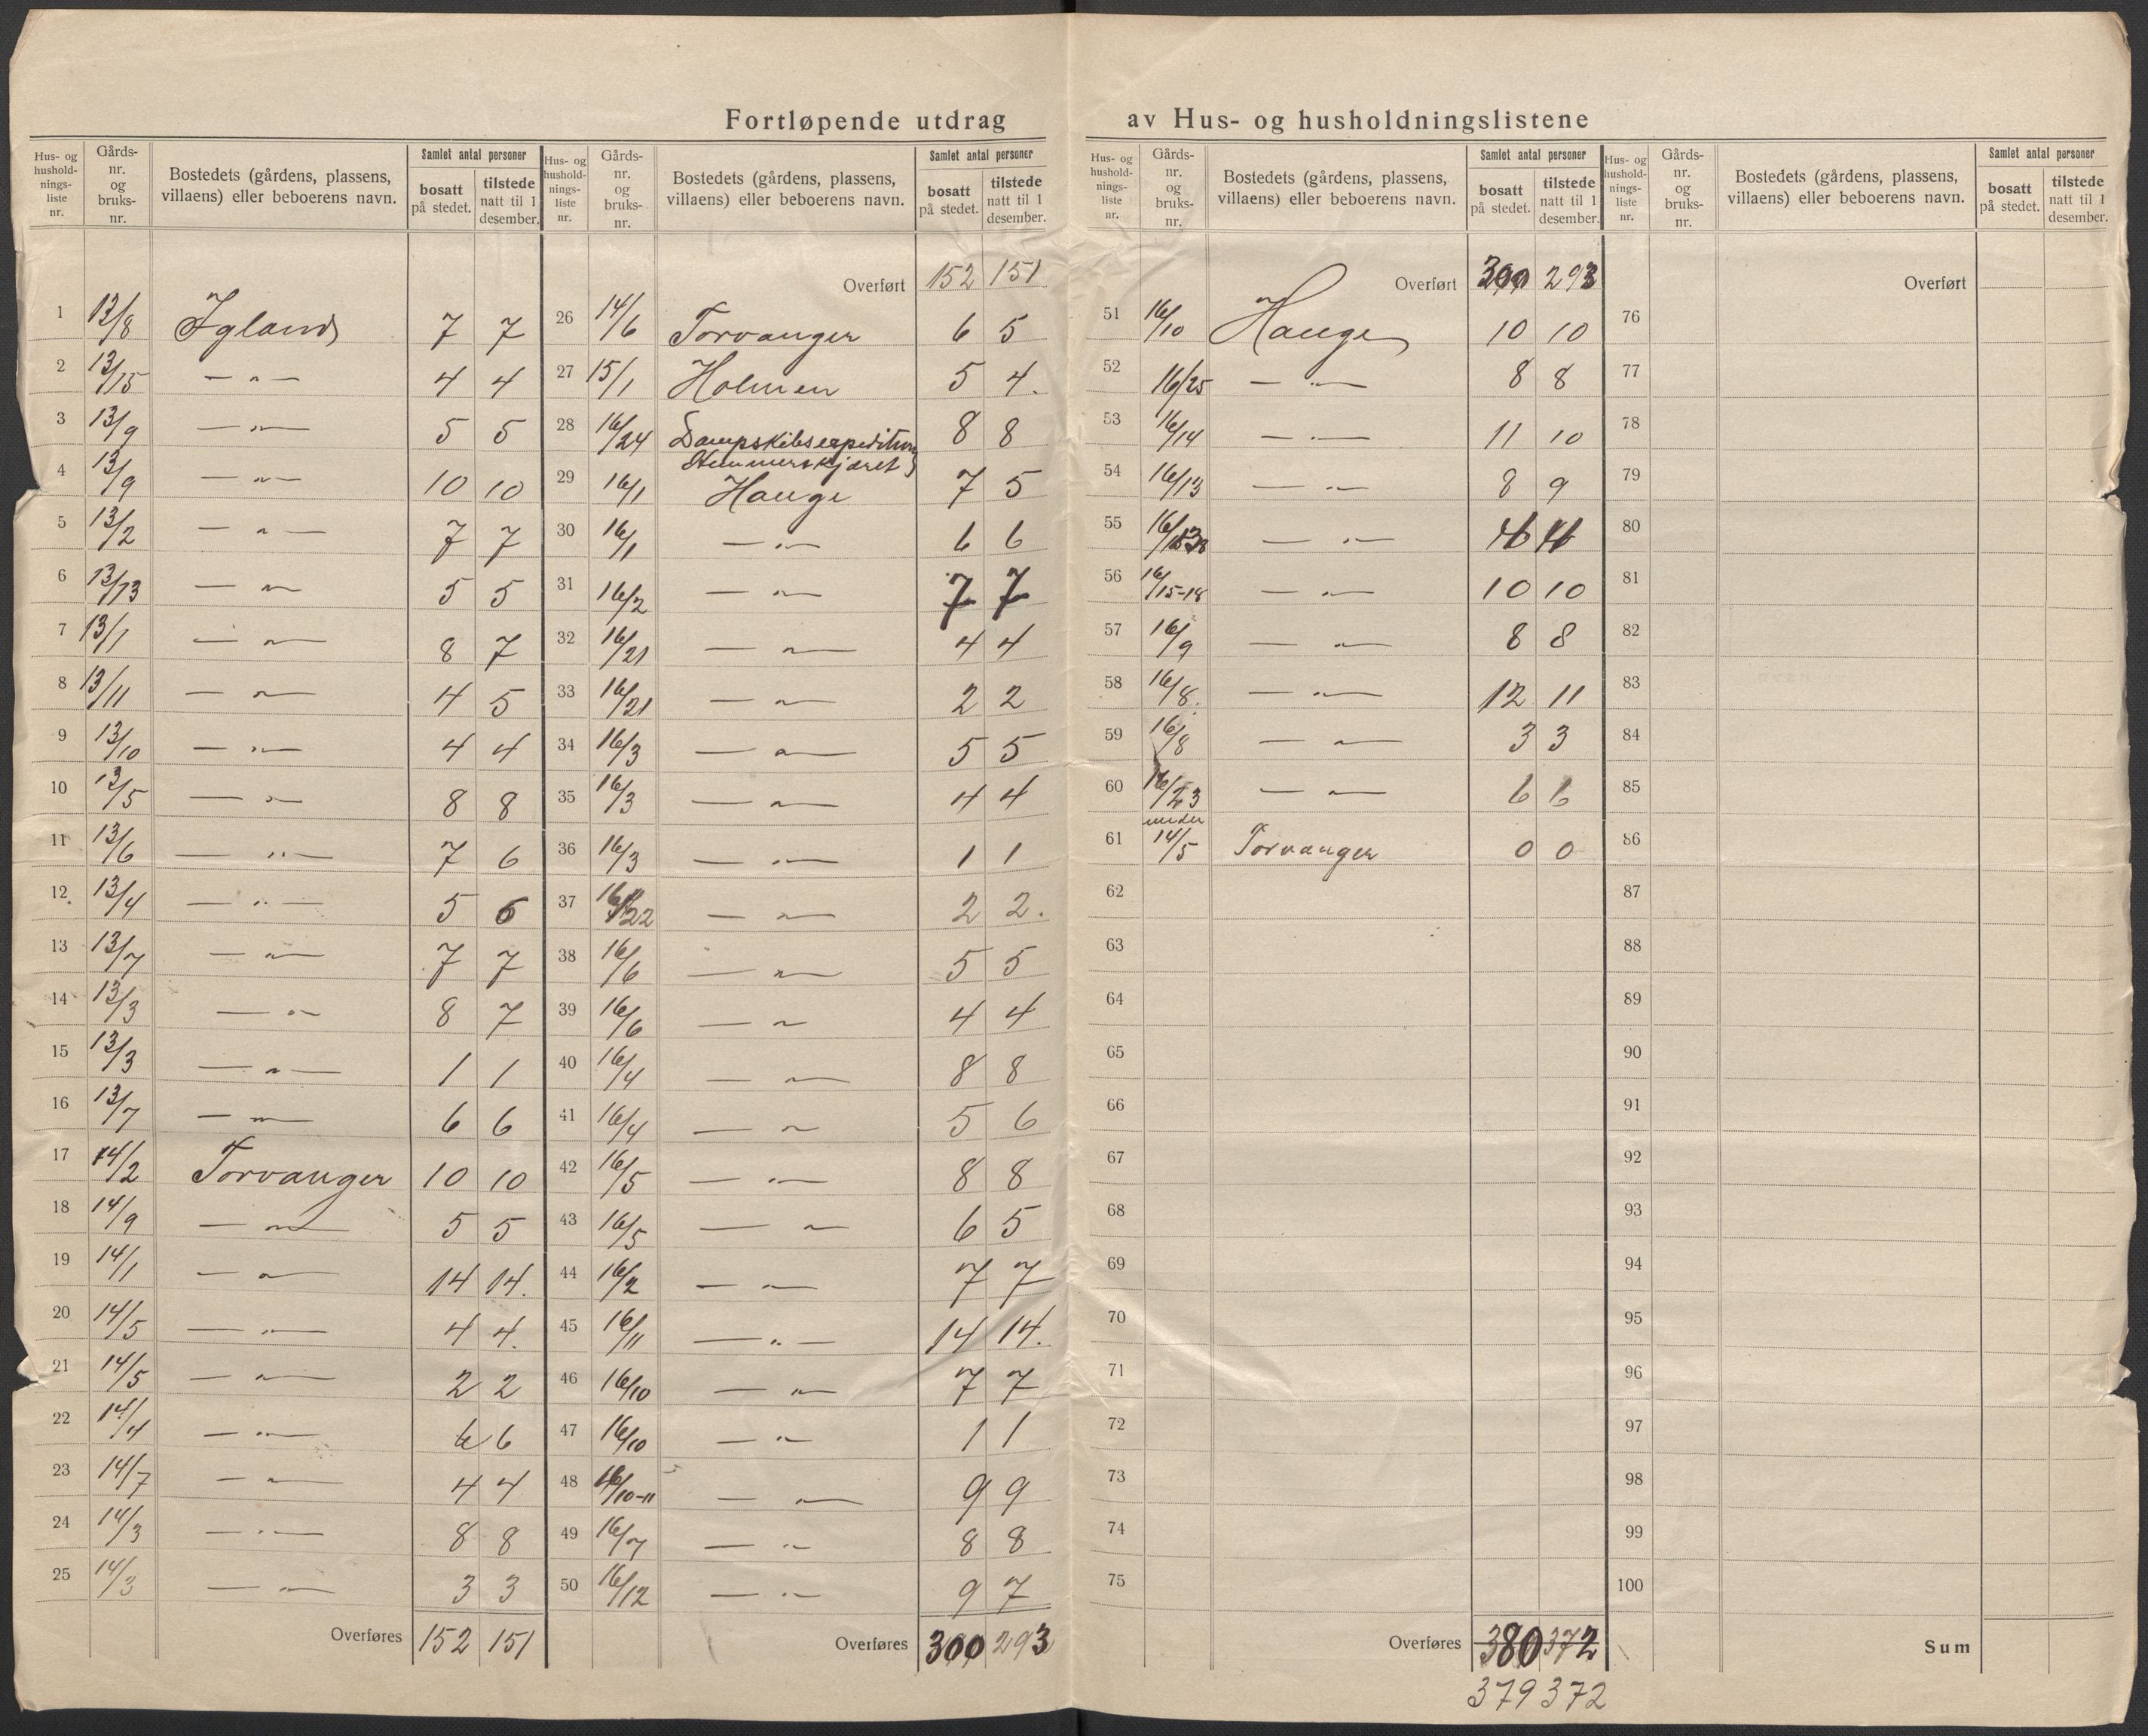 Fortløpende utdrag av Hus- og husholdningslistene
Hus- og hushold-nings-liste nr. | Gårds-nr. og bruks-nr. | Bostedets (gårdens, plassens, villaens) eller beboerens navn. | Samlet antal personer | bosatt på stedet. | tilstede natt til 1 desember.
1 13/8 Igland 7 7
2 13/15 — " — 4 4
3 13/9 — " — 5 5
4 13/9 — " — 10 10
5 13/2 — " — 7 7
6 13/13 — " — 5 5
7 13/1 — " — 8 7
8 13/11 — " — 4 5
9 13/10 — " — 4 4
10 13/5 — " — 8 8
11 13/6 — " — 7 6
12 13/4 — " — 5 6
13 13/7 — " — 7 7
14 13/3 — " — 8 7
15 13/3 — " — 1 1
16 13/7 — " — 6 6
17 14/2 Torvanger 10 10
18 14/9 — " — 5 5
19 14/1 — " — 14 14.
20 14/5 — " — 4 4.
21 14/5 — " — 2 2
22 14/4 — " — 6 6
23 14/7 — " — 4 4
24 14/3 — " — 8 8
25 14/3 — " — 3 3
Overføres 152 151
Hus- og hushold-nings-liste nr. | Gårds-nr. og bruks-nr. | Bostedets (gårdens, plassens, villaens) eller beboerens navn. | Samlet antal personer | bosatt på stedet. | tilstede natt til 1 desember.
Overført 152 151
26 14/6 Torvanger 6 5
27 15/1 Holmen 5 4.
28 16/24 Dampskibsexpedition 8 8
Hummerskjæret
29 16/1 Hauge 7 5
30 16/1 — " — 6 6
31 16/2 — " — 7 7
32 16/21 — " — 4 4
33 16/21 — " — 2 2
34 16/3 — " — 5 5
35 16/3 — " — 4 4
36 16/3 — " — 1 1
37 16/22 — " — 2 2.
38 16/6 — " — 5 5
39 16/6 — " — 4 4
40 16/4 — " — 8 8
41 16/4 — " — 5 6
42 16/5 — " — 8 8
43 16/5 — " — 6 5
44 16/2 — " — 7 7
45 16/11 — " — 14 14.
46 16/10 — " — 7 7
47 16/10 — " — 1 1
48 16/10-11 — " — 9 9
49 16/7 — " — 8 8
50 16/12 — " — 9 7
Overføres 300 293
Hus- og hushold-nings-liste nr. | Gårds-nr. og bruks-nr. | Bostedets (gårdens, plassens, villaens) eller beboerens navn. | Samlet antal personer | bosatt på stedet. | tilstede natt til 1 desember.
Overført 300 293
51 16/10 Hauge 10 10
52 16/25 — " — 8 8
53 16/14 — " — 11 10
54 16/13 — " — 8 9
55 — " — 4 4
56 16/15-18 — " — 10 10
57 16/9 — " — 8 8
58 16/8. — " — 12 11
59 16/8 — " — 3 3
60 16/23 — " — 6 6
61 under 14/5 Torvanger 0 0
62
63
64
65
66
67
68
69
70
71
72
73
74
75
Overføres 380 372
379 372
Hus- og hushold-nings-liste nr. | Gårds-nr. og bruks-nr. | Bostedets (gårdens, plassens, villaens) eller beboerens navn. | Samlet antal personer | bosatt på stedet. | tilstede natt til 1 desember.
Overført
76
77
78
79
80
81
82
83
84
85
86
87
88
89
90
91
92
93
94
95
96
97
98
99
100
Sum